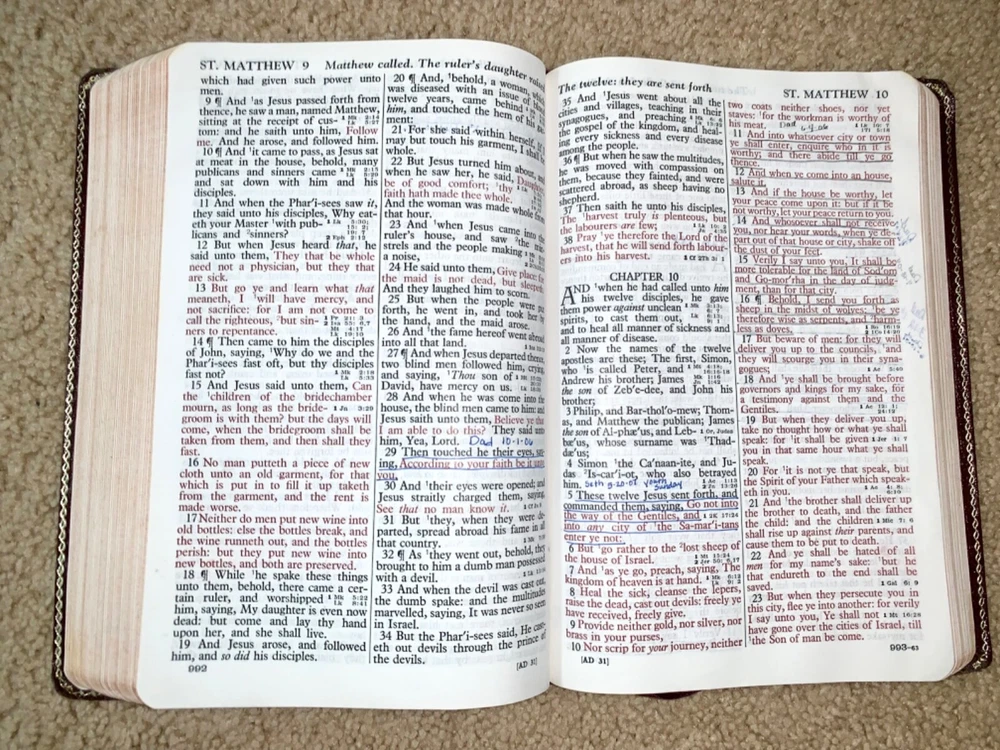 ST. MATTHEW 9 Matthew called. The ruler's daughter
which had given such power unto
men.
9 ¶ And ¹as Jesus passed forth from
thence, he saw a man, named Matthew,
sitting at the receipt of cus-
tom: and he saith unto him, Follow
me. And he arose, and followed him.
10 ¶ And ¹it came to pass, as Jesus sat
at meat in the house, behold, many
publicans and sinners came
and sat down with him and his
disciples.
11 And when the Phar'i-sees saw it,
they said unto his disciples, Why eat-
eth your Master ¹with pub-
licans and ²sinners?
12 But when Jesus heard that, he
said unto them, They that be whole
need not a physician, but they that
are sick.
13 But go ye and learn what that
meaneth, I ¹will have mercy, and
not sacrifice: for I am not come to
call the righteous, ²but sin-
ners to repentance.
14 ¶ Then came to him the disciples
of John, saying, ¹Why do we and the
Phar'i-sees fast oft, but thy disciples
fast not?
15 And Jesus said unto them, Can
the ¹children of the bridechamber
mourn, as long as the bride-
groom is with them? but the days will
come, when the bridegroom shall be
taken from them, and then shall they
fast.
16 No man putteth a piece of new
cloth unto an old garment, for that
which is put in to fill it up taketh
from the garment, and the rent is
made worse.
17 Neither do men put new wine into
old bottles: else the bottles break, and
the wine runneth out, and the bottles
perish: but they put new wine into
new bottles, and both are preserved.
18 ¶ While ¹he spake these things
unto them, behold, there came a cer-
tain ruler, and worshipped
him, saying, My daughter is even now
dead: but come and lay thy hand
upon her, and she shall live.
19 And Jesus arose, and followed
him, and so did his disciples.
992
20 ¶ And, ¹behold, a woman,
was diseased with an issue of
twelve years, came behind
him, and touched the hem of his
ment:
21 For she said within herself, If
may but touch his garment, I shall
whole.
22 But Jesus turned him about,
when he saw her, he said,
be of good comfort; ¹thy
faith hath made thee whole.
And the woman was made whole from
that hour.
23 And ¹when Jesus came into
ruler's house, and saw ²the min-
strels and the people making
a noise,
24 He said unto them, Give place: for
the maid is not dead, but sleepeth.
And they laughed him to scorn.
25 But when the people were put
forth, he went in, and took her by
the hand, and the maid arose.
26 And the fame hereof went abroad
into all that land.
27 ¶ And when Jesus departed thence,
two blind men followed him, crying,
and saying, ¹Thou son of
David, have mercy on us.
28 And when he was come into the
house, the blind men came to him: and
Jesus saith unto them, Believe ye that
I am able to do this? They said unto
him, Yea, Lord. Dad 10-1-06
29 Then touched he their eyes, say-
ing, According to your faith be it unto
you.
30 And ¹their eyes were opened; and
Jesus straitly charged them, saying,
See that no man know it.
31 But ¹they, when they were de-
parted, spread abroad his fame in all
that country.
32 ¶ ¹As they went out, behold, they
brought to him a dumb man possessed
with a devil.
33 And when the devil was cast out,
the dumb spake: and the multitudes
marvelled, saying, It was never so seen
in Israel.
34 But the Phar'i-sees said, He cast-
eth out devils through the prince of
the devils.
[AD 31]
The twelve: they are sent forth
35 And ¹Jesus went about all the
cities and villages, teaching in their
synagogues, and preaching
the gospel of the kingdom, and heal-
ing every sickness and every disease
among the people.
36 ¶ But when he saw the multitudes,
he was moved with compassion on
them, because they fainted, and were
scattered abroad, as sheep having no
shepherd.
37 Then saith he unto his disciples,
The ¹harvest truly is plenteous, but
the labourers are few;
38 Pray ¹ye therefore the Lord of the
harvest, that he will send forth labour-
ers into his harvest.
CHAPTER 10
AND ¹when he had called unto him
his twelve disciples, he gave
them power against unclean
spirits, to cast them out,
and to heal all manner of sickness and
all manner of disease.
2 Now the names of the twelve
apostles are these; The first, Simon,
who ¹is called Peter, and
Andrew his brother; James
the son of Zeb'e-dee, and John his
brother;
3 Philip, and Bar-thol'o-mew; Thom-
as, and Matthew the publican; James
the son of Al-phæ'us, and Leb-
bæ'us, whose surname was ¹Thad-
dæ'us;
4 Simon ¹the Ca'naan-ite, and Ju-
das ²Is-car'i-ot, who also betrayed
him. Seth 9-20-08 youth Sunday
5 These twelve Jesus sent forth, and
commanded them, saying, Go not into
the way of the Gentiles, and
into any city of ¹the Sa-mar'i-tans
enter ye not:
6 But ¹go rather to the ²lost sheep of
the house of Israel.
7 And as ye go, preach, saying, The
kingdom of heaven is at hand.
8 Heal the sick, cleanse the lepers,
raise the dead, cast out devils: freely ye
have received, freely give.
9 Provide neither gold, nor silver, nor
brass in your purses,
10 Nor scrip for your journey, neither
[AD 31]
ST. MATTHEW 10
two coats neither shoes, nor yet
staves: ¹for the workman is worthy of
his meat. Dad
11 And into whatsoever city or town
ye shall enter, enquire who in it is
worthy; and there abide till ye go
thence.
12 And when ye come into an house,
salute it.
13 And if the house be worthy, let
your peace come upon it: but if it be
not worthy, let your peace return to you.
14 And whosoever shall not receive
you, nor hear your words, when ye de-
part out of that house or city, shake off
the dust of your feet.
15 Verily I say unto you, It shall be
more tolerable for the land of Sod'om
and Go-mor'rha in the day of judg-
ment, than for that city.
16 ¶ Behold, I send you forth as
sheep in the midst of wolves: ¹be ye
therefore wise as serpents, and ²harm-
less as doves.
17 But beware of men: for they will
deliver you up to the councils, ¹and
they will scourge you in their syna-
gogues;
18 And ¹ye shall be brought before
governors and kings for my sake, for
a testimony against them and the
Gentiles.
19 But when they deliver you up,
take no thought how or what ye shall
speak: for ¹it shall be given
you in that same hour what ye shall
speak.
20 For ¹it is not ye that speak, but
the Spirit of your Father which speak-
eth in you.
21 And ¹the brother shall deliver up
the brother to death, and the father
the child: and the children
shall rise up against their parents, and
cause them to be put to death.
22 And ye shall be hated of all
men for my name's sake: ¹but he
that endureth to the end shall be
saved.
23 But when they persecute you in
this city, flee ye into another: for verily
I say unto you, Ye shall not
have gone over the cities of Israel, till
¹the Son of man be come.
993-63